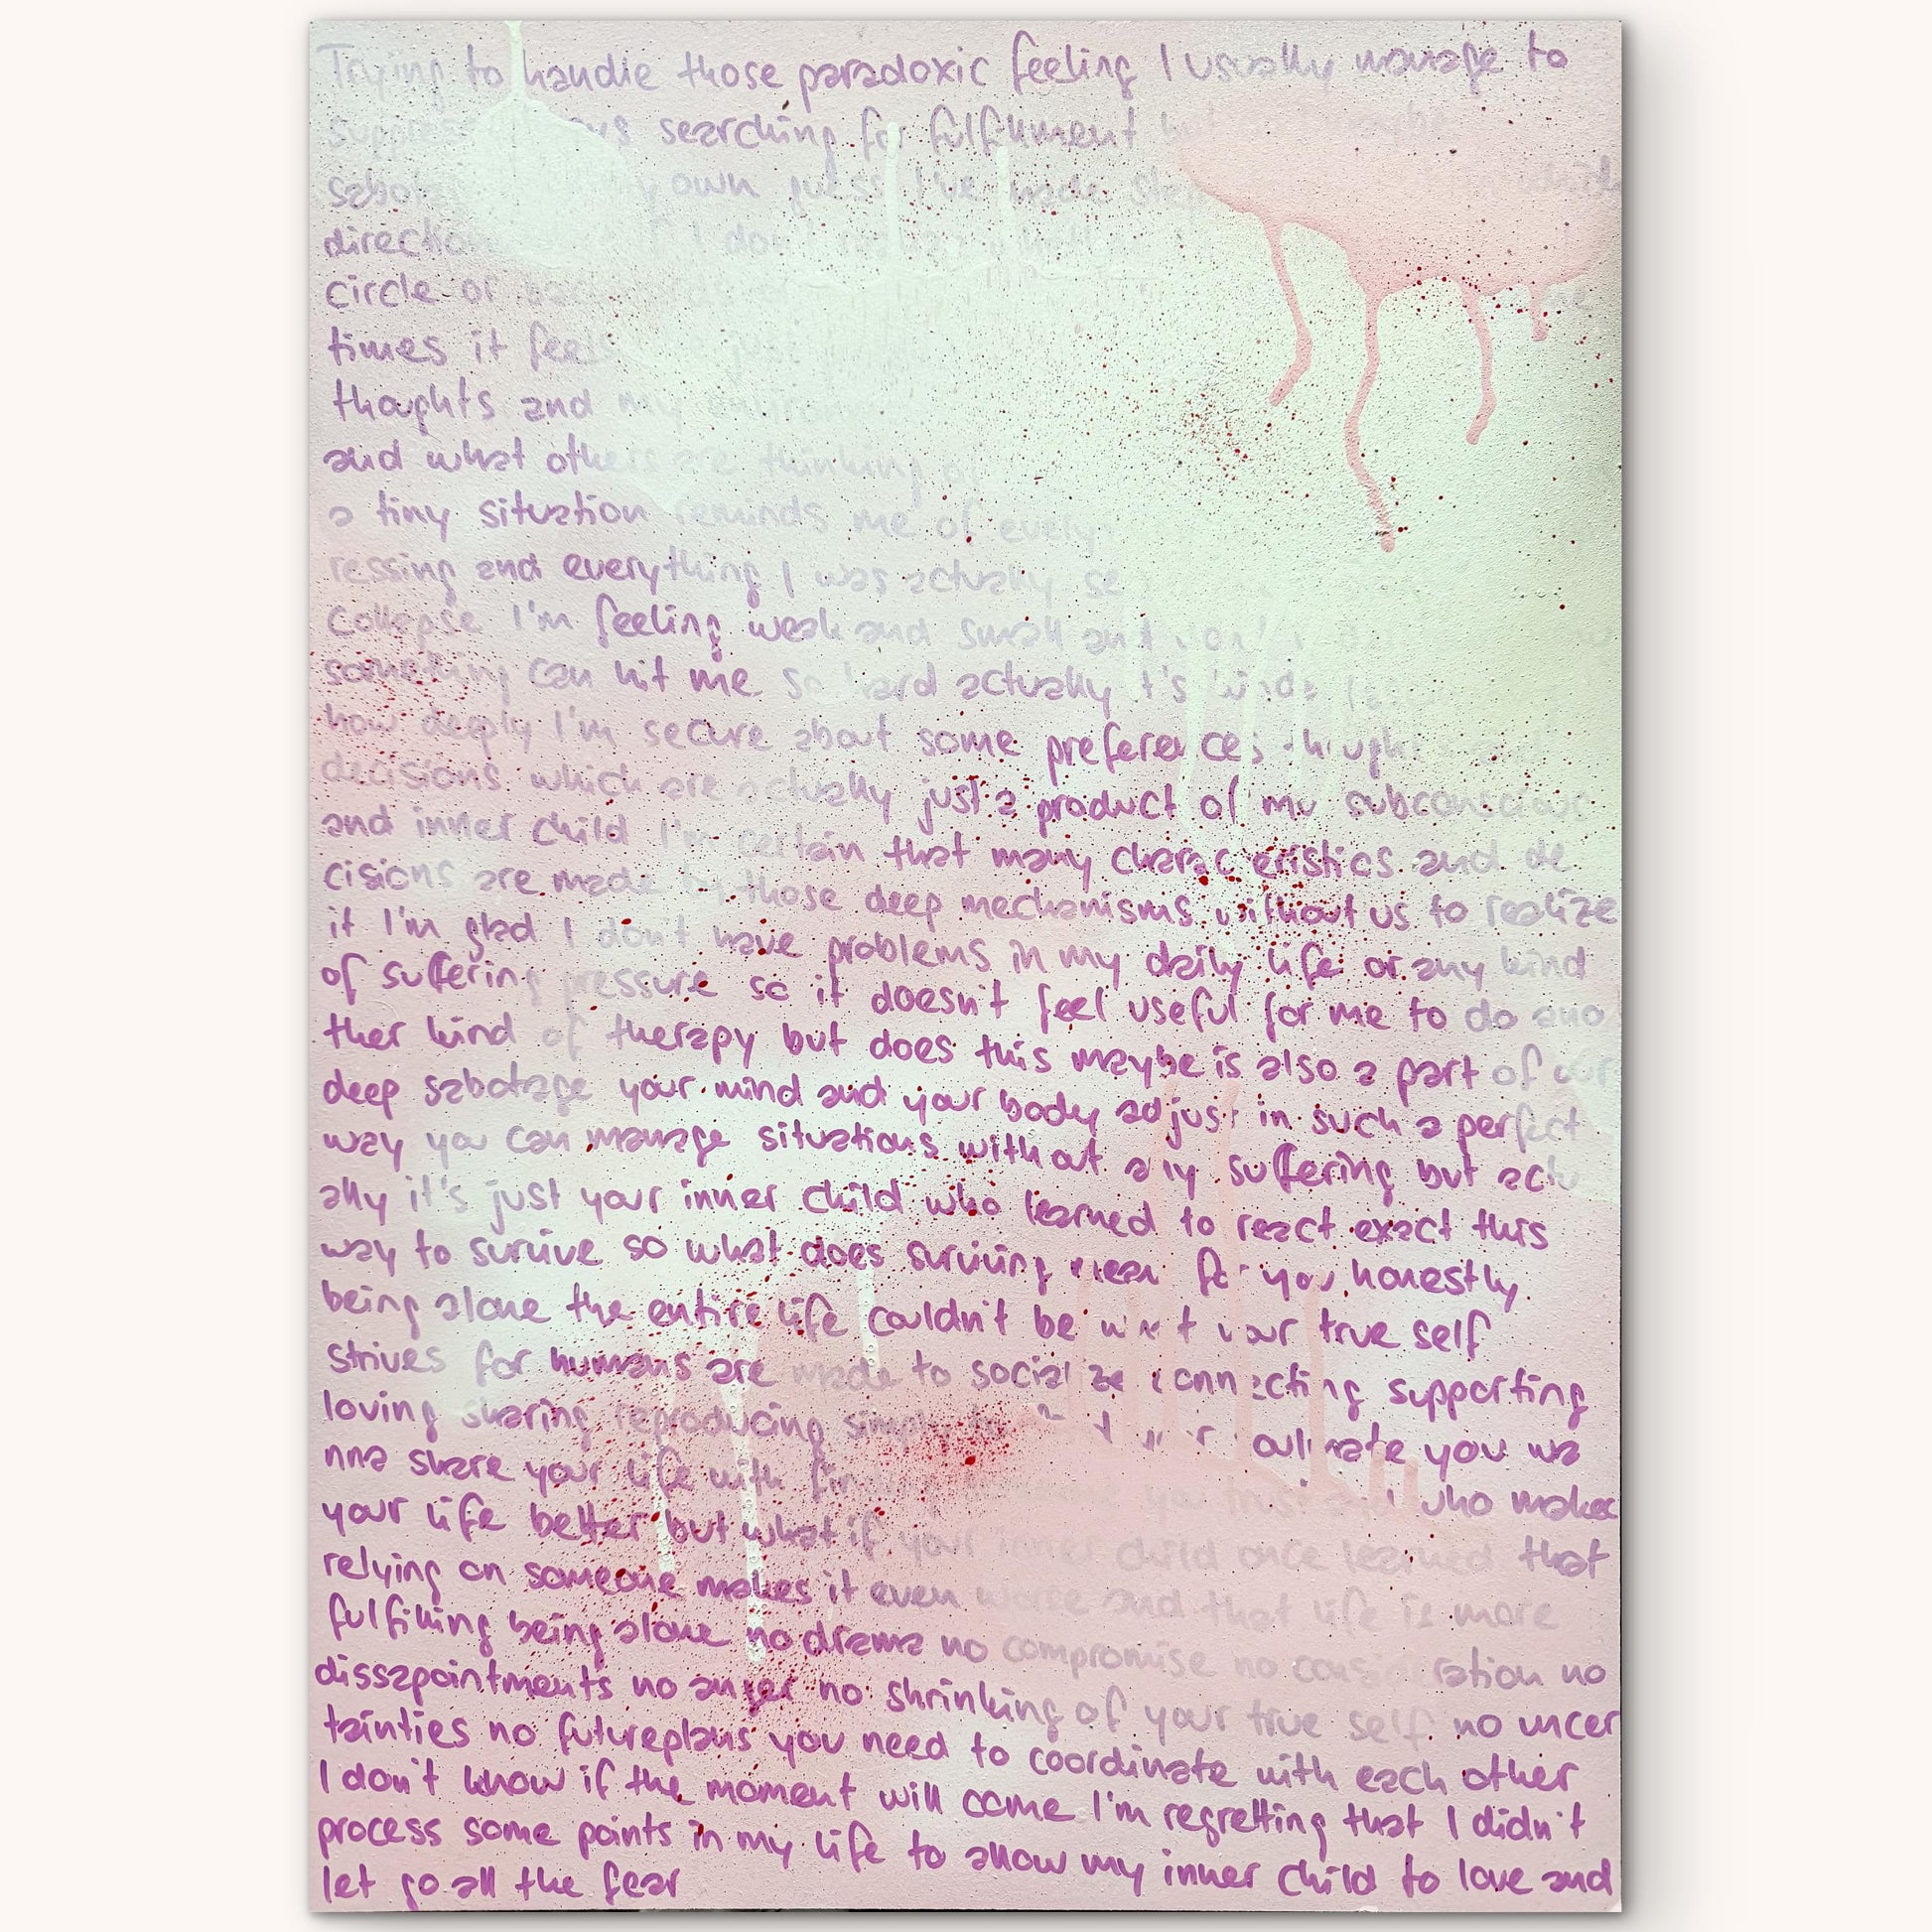 Trying to handle those paradoxic feeling I usually manage to
searching for fulfillment
own guess I've made step
direction if I don't
circle or backwards
times it feels
thoughts and my entire
and what others are thinking of
a tiny situation reminds me of every
ressing and everything I was actually se
collapse I'm feeling weak and small and
something can hit me so hard actually it's kinda
how deeply I'm secure about some preferences thoughts and
decisions which are actually just a product of my subconscious
and inner child I'm certain that many characteristics and de
cisions are made by those deep mechanisms without us to realize
it I'm glad I don't have problems in my daily life or any kind
of suffering pressure so it doesn't feel useful for me to do ano
ther kind of therapy but does this maybe is also a part of our
deep sabotage your mind and your body adjust in such a perfect
way you can manage situations without any suffering but actu
ally it's just your inner child who learned to react exact this
way to survive so what does surviving mean for you honestly
being alone the entire life couldn't be what your true self
strives for humans are made to socialize connecting supporting
loving sharing reproducing simply to find your soulmate you wa
nna share your life with you trust and who makes
your life better but what if your inner child once learned that
relying on someone makes it even worse and that life is more
fulfilling being alone no drama no compromise no consideration no
dissapointments no anger no shrinking of your true self no uncer
tainties no futureplans you need to coordinate with each other
I don't know if the moment will come I'm regretting that I didn't
process some points in my life to allow my inner child to love and
let go all the fear